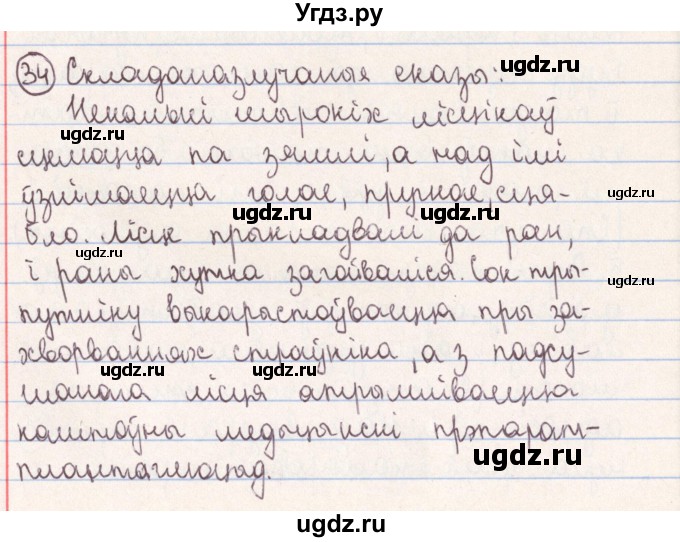 Угдз.ру
34 Складаназлучаныя сказы:
Некалькі шырокіх лісцікаў
сцелюцца па зямлі, а над імі
ўзнімаецца голае, пругкае, сця-
бло. Лісце прыкладвалі да ран,
і раны хутка загойваліся. Сок тры-
путніку выкарыстоўваецца пры за-
хворваннях страўніка, а з падсу-
шанага лісця атрымліваецца
каштоўны медыцынскі прэпарат-
плантаглюцыд.
ugdz.ru
ugdz.ru
ugdz.ru
ugdz.ru
ugdz.ru
ugdz.ru
ugdz.ru
ugdz.ru
ugdz.ru